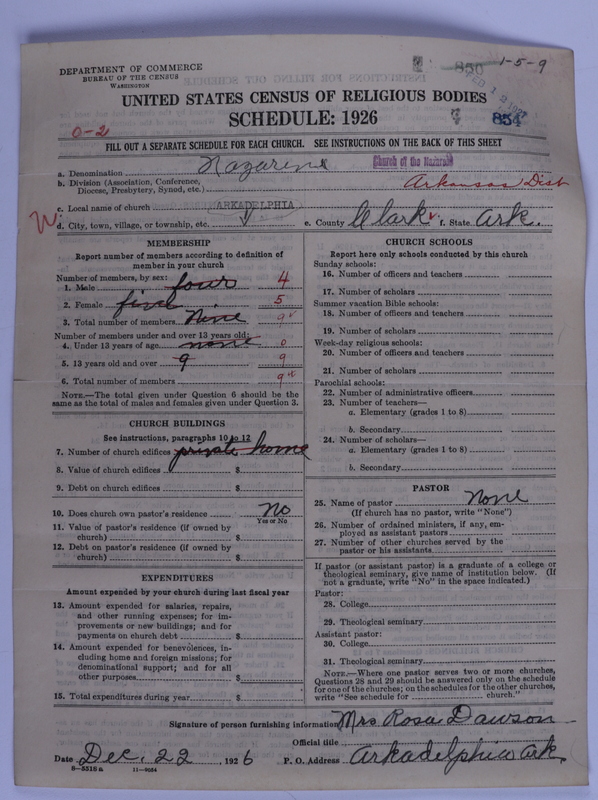 DEPARTMENT OF COMMERCE
BUREAU OF THE CENSUS
WASHINGTON
850 1-5-9
UNITED STATES CENSUS OF RELIGIOUS BODIES
SCHEDULE: 1926
854
0-2
FILL OUT A SEPARATE SCHEDULE FOR EACH CHURCH. SEE INSTRUCTIONS ON THE BACK OF THIS SHEET
a. Denomination Nazarine Church of the Nazarene
b. Division (Association, Conference, Diocese, Presbytery, Synod, etc.) Arkansas Dist
c. Local name of church ARKADELPHIA
d. City, town, village, or township, etc. e. County Clark f. State Ark.
MEMBERSHIP
Report number of members according to definition of
member in your church
Number of members, by sex:
1. Male four 4
2. Female five 5
3. Total number of members Nine 9
Number of members under and over 13 years old:
4. Under 13 years of age none 0
5. 13 years old and over 9 9
6. Total number of members 9
NOTE.—The total given under Question 6 should be
same as the total of males and females given under Question 3.
CHURCH BUILDINGS
See instructions, paragraphs 10 to 12
7. Number of church edifices private home
8. Value of church edifices $
9. Debt on church edifices $
10. Does church own pastor's residence No
Yes or No
11. Value of pastor's residence (if owned by
church) $
12. Debt on pastor's residence (if owned by
church) $
EXPENDITURES
Amount expended by your church during last fiscal year
13. Amount expended for salaries, repairs,
and other running expenses; for im-
provements or new buildings; and for
payments on church debt $
14. Amount expended for benevolences, in-
cluding home and foreign missions; for
denominational support; and for all
other purposes $
15. Total expenditures during year $
CHURCH SCHOOLS
Report here only schools conducted by this church
Sunday schools:
16. Number of officers and teachers
17. Number of scholars
Summer vacation Bible schools:
18. Number of officers and teachers
19. Number of scholars
Week-day religious schools:
20. Number of officers and teachers
21. Number of scholars
Parochial schools:
22. Number of administrative officers
23. Number of teachers—
a. Elementary (grades 1 to 8)
b. Secondary
24. Number of scholars—
a. Elementary (grades 1 to 8)
b. Secondary
PASTOR
25. Name of pastor None
(If church has no pastor, write "None")
26. Number of ordained ministers, if any, em-
ployed as assistant pastors
27. Number of other churches served by the
pastor or his assistants
If pastor (or assistant pastor) is a graduate of a college or
theological seminary, give name of institution below. (If
not a graduate, write "No" in the space indicated.)
Pastor:
28. College
29. Theological seminary
Assistant pastor:
30. College
31. Theological seminary
NOTE.—Where one pastor serves two or more churches,
Questions 28 and 29 should be answered only on the schedule
for one of the churches; on the schedules for the other churches,
write "See schedule for church."
Signature of person furnishing information Mrs Rosa Dawson
Official title
Date Dec. 22, 1926 P. O. Address Arkadelphia Ark.
8-5516a 11-9084